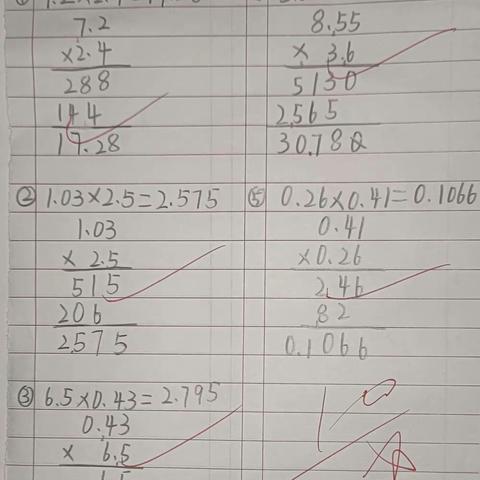 7.2
×2.4
288
144
17.28
② 1.03×2.5=2.575
1.03
× 2.5
515
206
2.575
③ 6.5×0.43=2.795
0.43
× 6.5
8.55
× 3.6
5130
2565
30.780
⑤ 0.26×0.41=0.1066
0.41
×0.26
2 46
82
0.1066